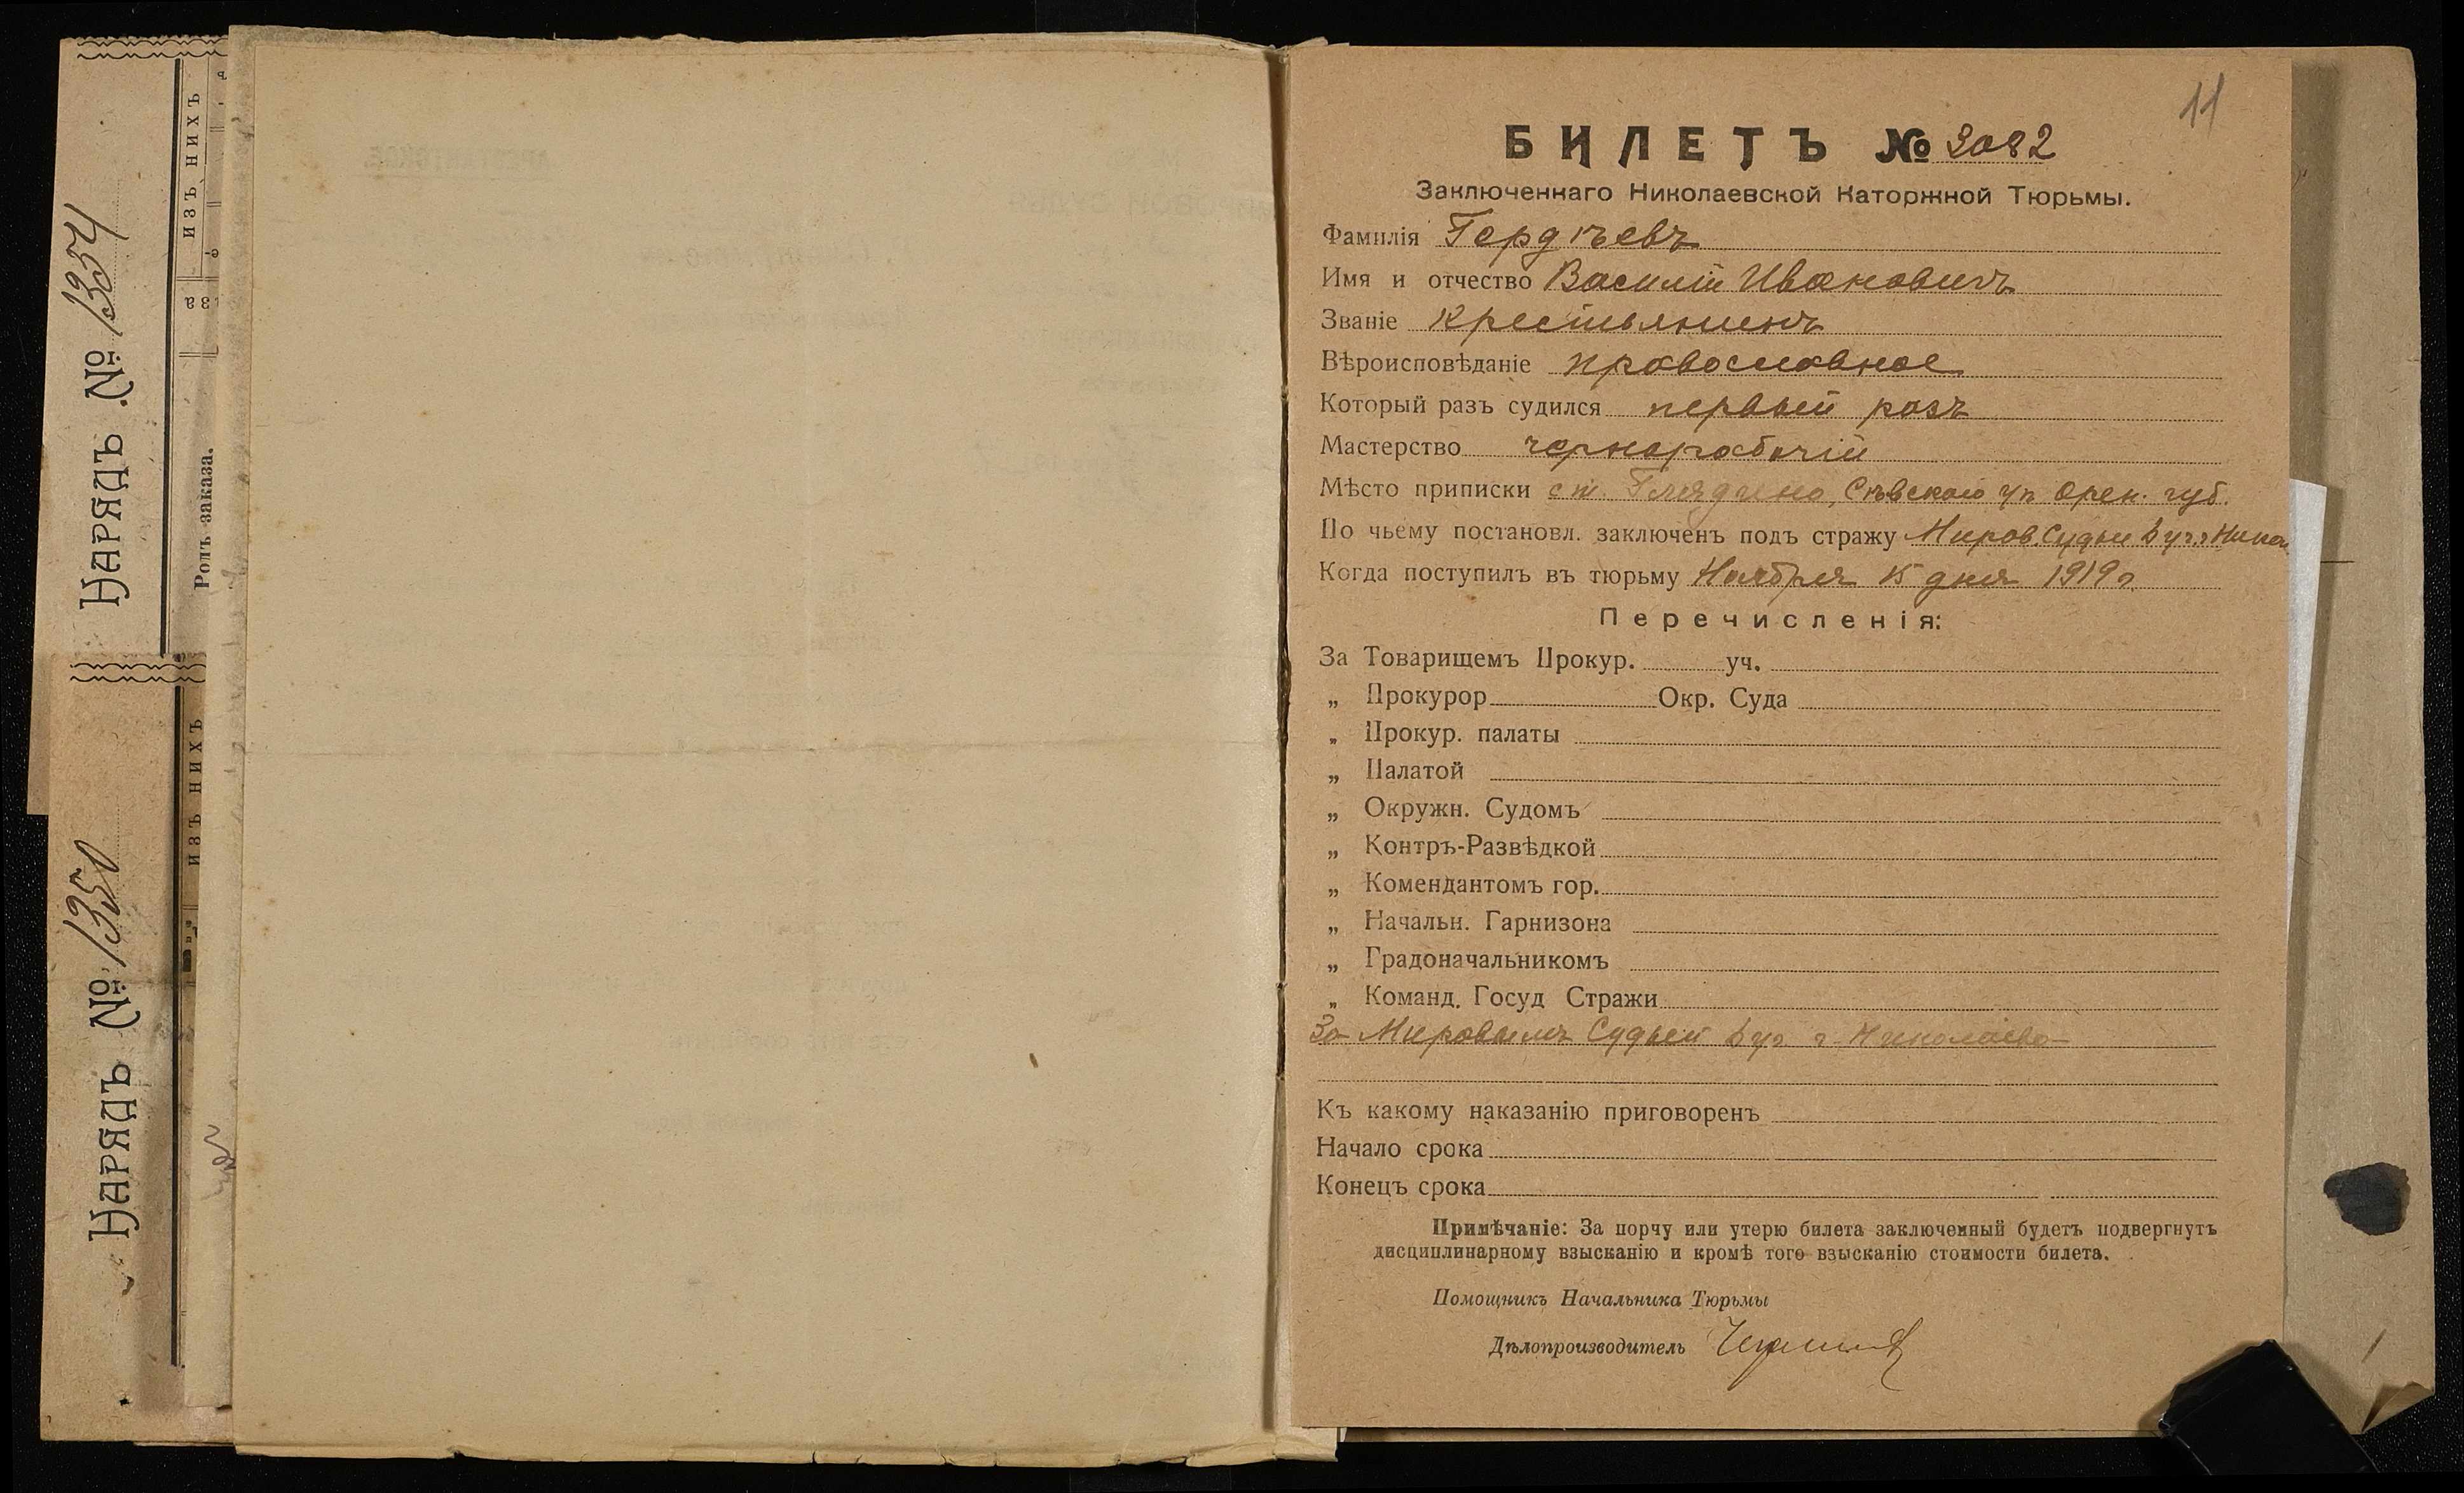 Нарядъ № 1354
изъ нихъ
Родъ заказа.
Нарядъ № 1350
изъ нихъ
11
БИЛЕТЪ № 3082
Заключеннаго Николаевской Каторжной Тюрьмы.
Фамилія Гердѣевъ
Имя и отчество Василій Ивановичъ
Званіе крестьянинъ
Вѣроисповѣданіе православное
Который разъ судился первый разъ
Мастерство чернорабочій
Мѣсто приписки ст. Сѣвскаго у. Орен. губ.
По чьему постановл. заключенъ подъ стражу Миров. Судьи 5 уч. г. Никол
Когда поступилъ въ тюрьму Ноября 15 дня 1919 г.
Перечисленія:
За Товарищемъ Прокур. уч.
„ Прокурор Окр. Суда
„ Прокур. палаты
„ Палатой
„ Окружн. Судомъ
„ Контръ-Развѣдкой
„ Комендантомъ гор.
„ Начальн. Гарнизона
„ Градоначальникомъ
„ Команд. Госуд Стражи
За Мировымъ Судьей 5 уч. г. Николаева
Къ какому наказанію приговоренъ
Начало срока
Конецъ срока
Примѣчаніе: За порчу или утерю билета заключенный будетъ подвергнутъ
дисциплинарному взысканію и кромѣ того взысканію стоимости билета.
Помощникъ Начальника Тюрьмы
Дѣлопроизводитель